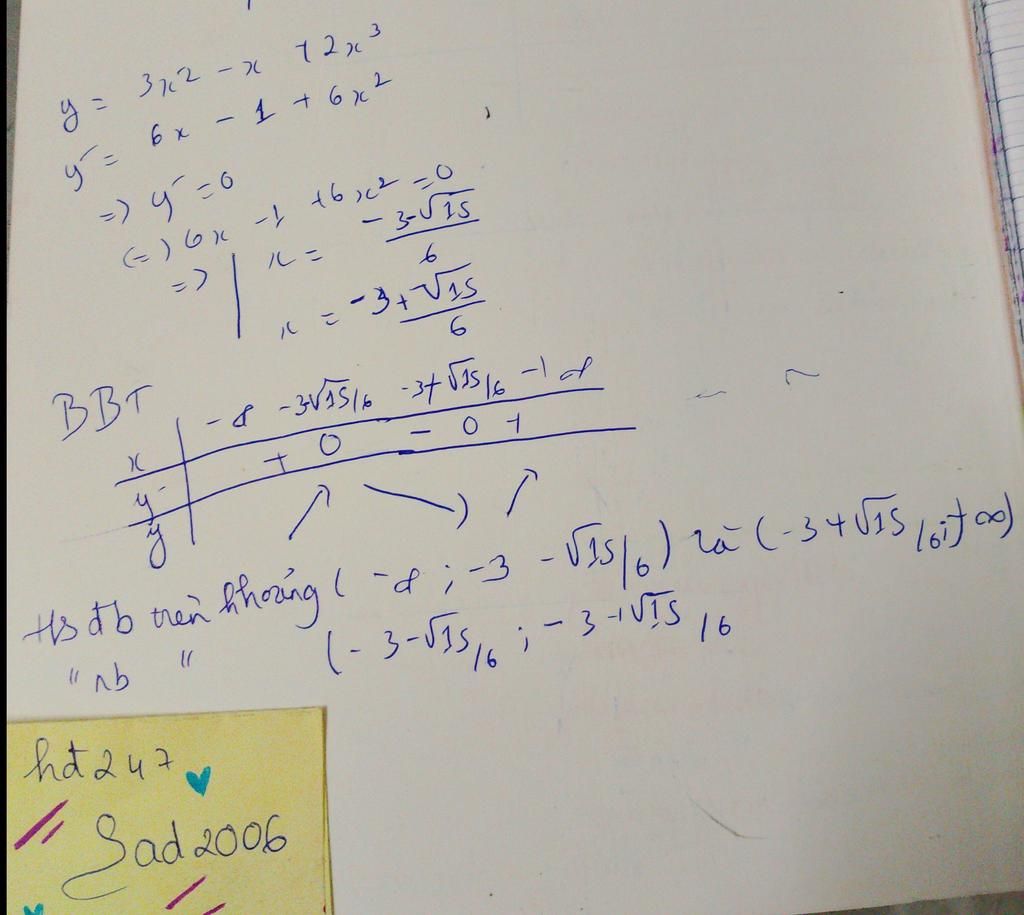 y = 3x² - x + 2x³
y' = 6x - 1 + 6x²
=> y' = 0
(=) 6x - 1 + 6x² = 0
=> | x = -3-√15 / 6
x = -3+√15 / 6
BBT
x | -∞ -3-√15/6 -3+√15/6 +∞
y' | + 0 - 0 +
y
Hs đb trên khoảng (-∞; -3 -√15/6) và (-3+√15/6; +∞)
" nb " (-3-√15/6; -3+√15/6
hđ247
Sad2006